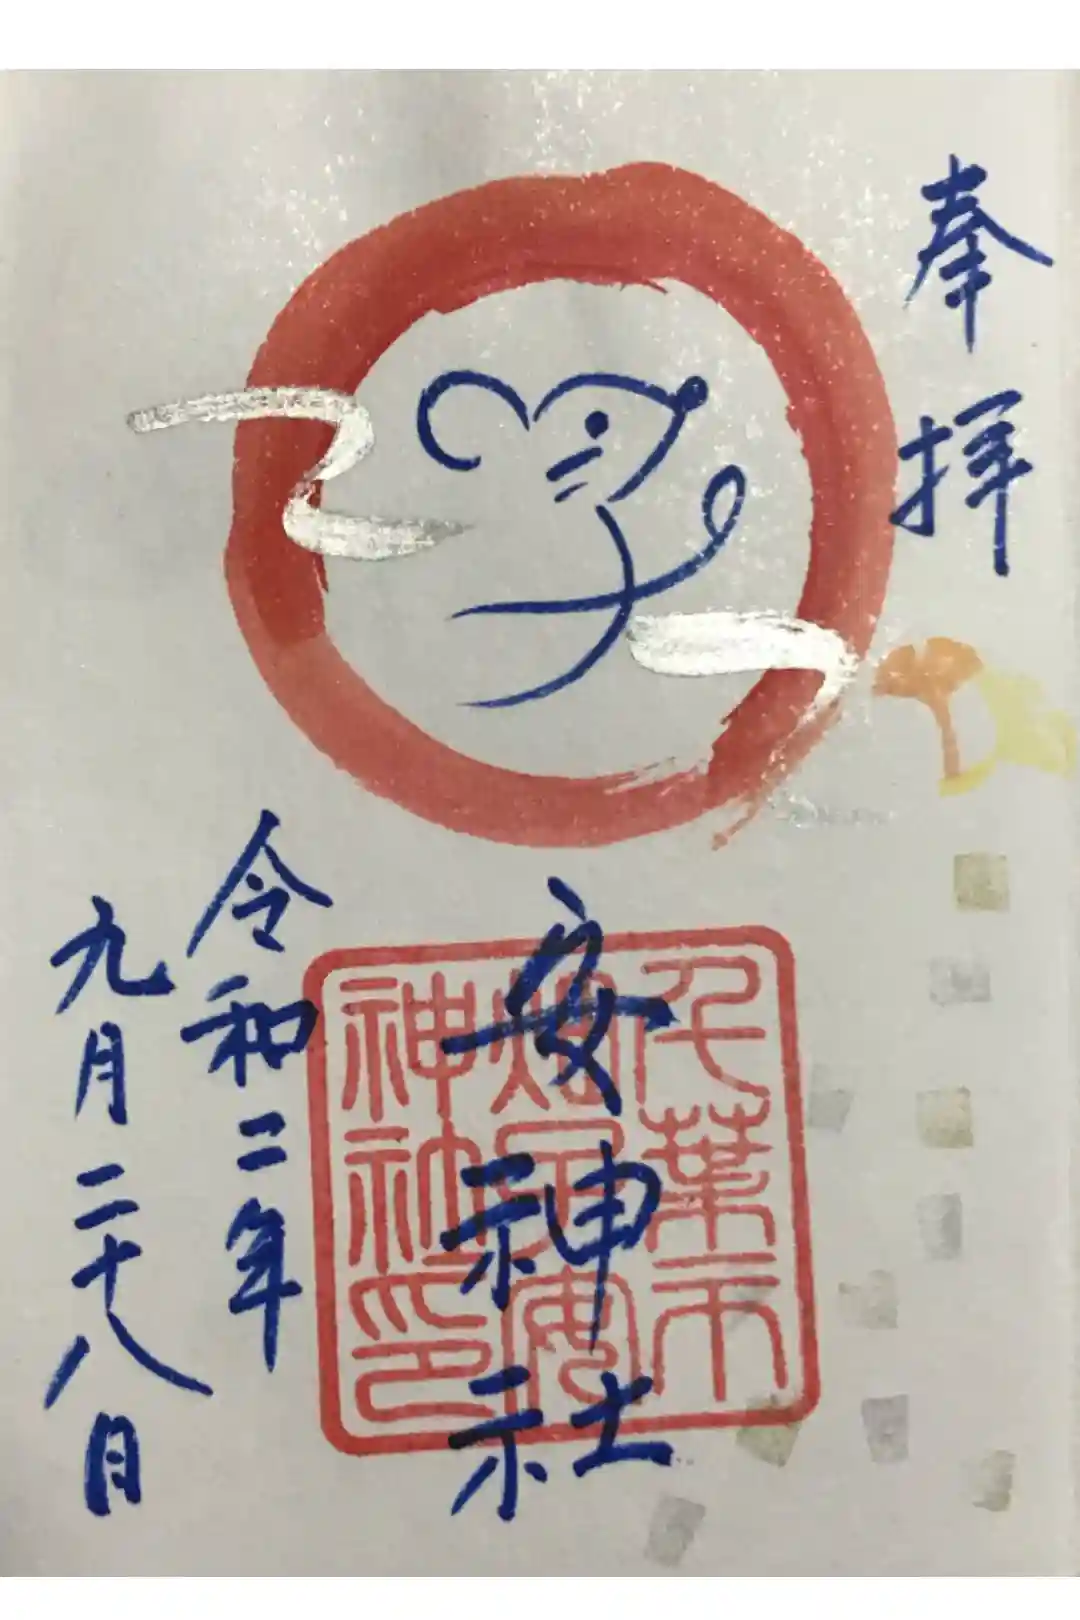 奉拝
安神社
千葉市
畑子安
神社印
令和二年
九月二十八日